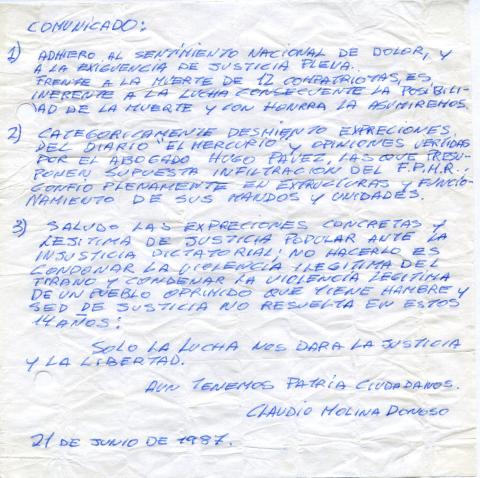 COMUNICADO:
1) ADHIERO AL SENTIMIENTO NACIONAL DE DOLOR, Y
A LA EXIGUENCIA DE JUSTICIA PLENA.
FRENTE A LA MUERTE DE 12 COMPATRIOTAS, ES
INERENTE A LA LUCHA CONSECUENTE LA POSIBILI-
AD DE LA MUERTE Y CON HONRRA LA ASUMIREMOS.
2) CATEGORICAMENTE DESMIENTO EXPRECIONES
DEL DIARIO "EL MERCURIO" Y OPINIONES VERTIDAS
POR EL ABOGADO HUGO PAVEZ, LAS QUE PRESU-
PONEN SUPUESTA INFILTRACION DEL F.P.M.R.:
CONFIO PLENAMEMTE EN EXTRUCTURAS Y FUNCIO-
NAMIENTO DE SUS MANDOS Y UNIDADES.
3) SALUDO LAS EXPRECIONES CONCRETAS Y
LEJITIMA DE JUSTICIA POPULAR ANTE LA
INJUSTICIA DICTATORIAL; NO HACERLO ES
CONDONAR LA VIOLENCIA ILEGITIMA DEL
TIRANO Y CONDENAR LA VIOLENCIA LEGITIMA
DE UN PUEBLO OPRIMIDO QUE TIENE HAMBRE Y
SED DE JUSTICIA NO RESUELTA EN ESTOS
14 AÑOS:
SOLO LA LUCHA NOS DARA LA JUSTICIA
Y LA LIBERTAD.
AUN TENEMOS PATRIA CIUDADANOS.
CLAUDIO MOLINA DONOSO
21 DE JUNIO DE 1987.